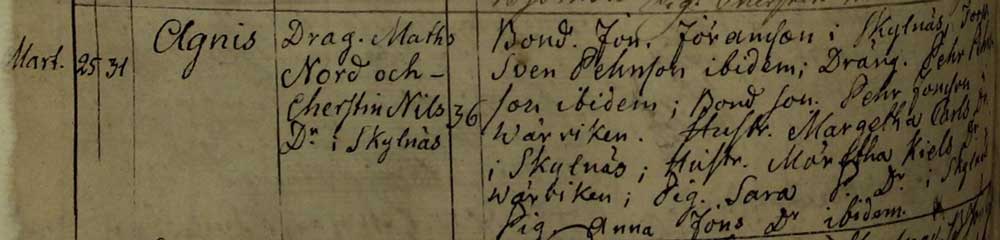 Mart. 25 31 Agnis
Drag. Maths
Nord och –
Cherstin Nils
Dr i Skylnäs
36
Bond. Jon. Jöransson i Skylnäs,
Sven Pehrson ibidem; Dräng. Pehr
son ibidem; Bond son. Pehr Jonson
Wärviken. Hustr. Margetha Carls Dr
i Skylnäs; Hustr. Märetha Kiels Dr
Wärviken; Pig. Sara Dr i Skylnäs
Pig. Anna Jons Dr ibidem.